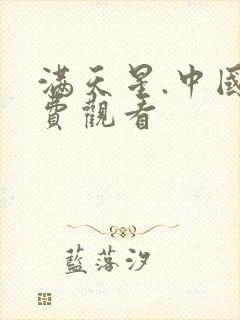 滿天星.中國
費觀看
藍落汐